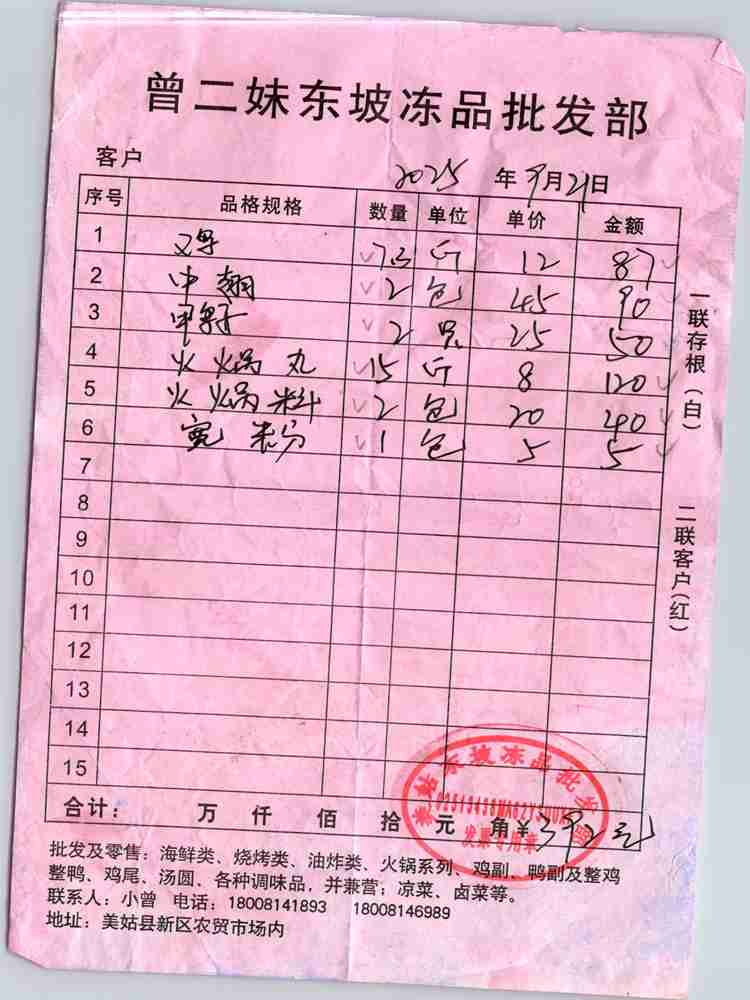 曾二妹东坡冻品批发部
客户 2025 年 9月21日
序号 品格规格 数量 单位 单价 金额
1 斤 12 87
2 中翅 2 包 45 90
3 2 25 50
4 火锅丸 15 斤 8 120
5 火锅料 2 包 20 40
6 宽粉 1 包 5 5
7
8
9
10
11
12
13
14
15
合计: 万 仟 佰 拾 元 角¥392元
一联存根(白)
二联客户(红)
东坡冻品批发部
发票专用章
批发及零售:海鲜类、烧烤类、油炸类、火锅系列、鸡副、鸭副及整鸡
整鸭、鸡尾、汤圆、各种调味品,并兼营;凉菜、卤菜等。
联系人:小曾 电话:18008141893 18008146989
地址:美姑县新区农贸市场内